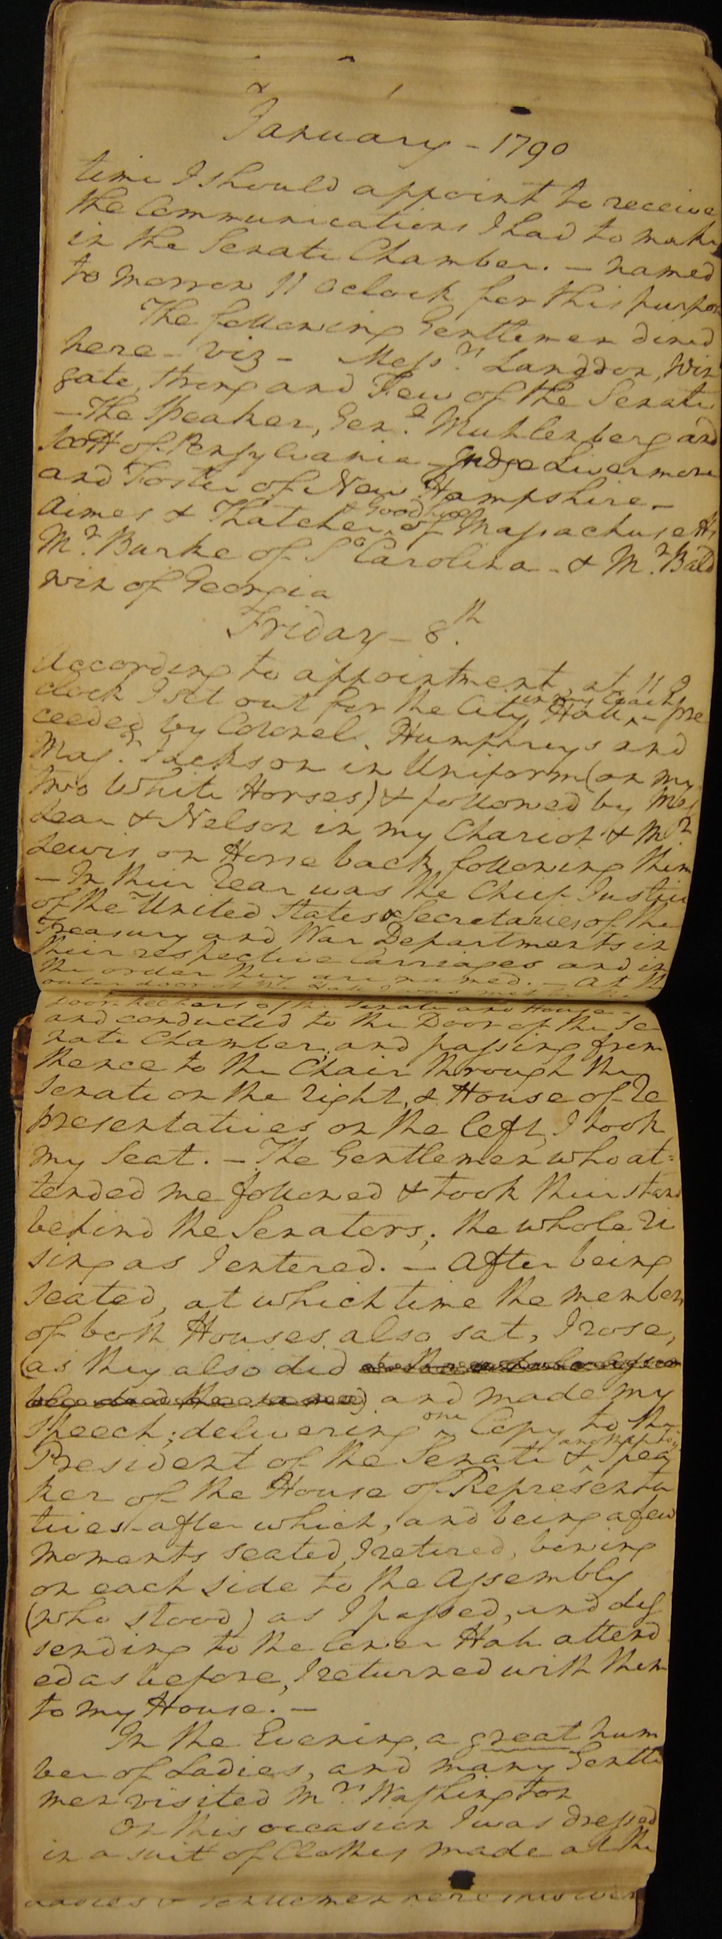 January - 1790
time I should appoint to receive
the Communications I had to make
in the Senate Chamber. — named
to morrow 11 Oclock for this purpos
The following Gentlemen dined
here - viz - Messrs. Langdon, Win
gate, Strong and Few of the Senate
— The Speaker, Genl. Muhlenberg and
Scott of Pensylvania - Judge Livermore
and Foster of New Hampshire -
Aimes & Thatcher & Goodhue of Massachusetts
Mr. Burke of So. Carolina - & Mr. Bald
win of Georgia
Friday - 8th.
According to appointment, at 11 O
clock I set out for the City Hall in my Coach - pre
ceeded by Colonel Humphreys and
Majr. Jackson in Uniform (on my
two White Horses) & followed by Mes
Lear & Nelson in my Chariot & Mr.
Lewis on Horse back following them
— In their rear was the Chief Justice
of the United States & Secretaries of the
Treasury and War Departments in
their respective Carriages and in
the order they are named. — At the
outer door of the Hall I was met by the
door-keepers of the Senate and House -
and conducted to the Door of the Se
nate Chamber; and passing from
thence to the Chair through the
Senate on the right, & House of re
presentatives on the left, I took
my Seat. — The Gentlemen who at=
tended me followed & took their stand
behind the Senators; the whole ri
sing as I entered. — After being
seated, at which time the members
of both Houses also sat, I rose,
(as they also did) and made my
Speech; delivering one Copy to the
President of the Senate & another to ye Spea
ker of the House of Representa
tives - after which, and being a few
moments seated, I retired, bowing
on each side to the Assembly
(who stood) as I passed, and des
sending to the lower Hall attend
ed as before, I returned with them
to my House. —
In the Evening a great num
ber of Ladies, and many Gentle
men visited Mrs. Washington
On this occasion I was dressed
in a suit of Clothes made at the
Ladies & Gentlemen here this even